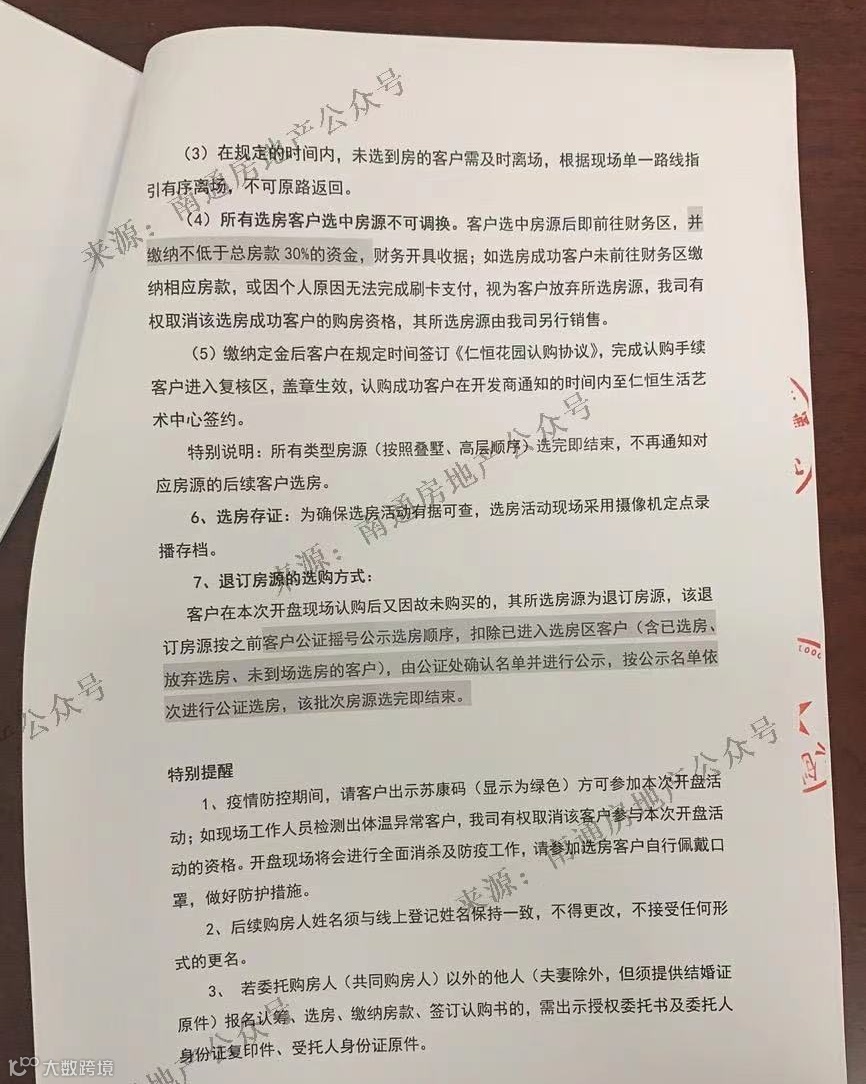 （3）在规定的时间内，未选到房的客户需及时离场，根据现场单一路线指
引有序离场，不可原路返回。
（4）所有选房客户选中房源不可调换。客户选中房源后即前往财务区，并
缴纳不低于总房款 30%的资金，财务开具收据；如选房成功客户未前往财务区缴
纳相应房款，或因个人原因无法完成刷卡支付，视为客户放弃所选房源，我司有
权取消该选房成功客户的购房资格，其所选房源由我司另行销售。
（5）缴纳定金后客户在规定时间签订《仁恒花园认购协议》，完成认购手续
客户进入复核区，盖章生效，认购成功客户在开发商通知的时间内至仁恒生活艺
术中心签约。
特别说明：所有类型房源（按照叠墅、高层顺序）选完即结束，不再通知对
应房源的后续客户选房。
6、选房存证：为确保选房活动有据可查，选房活动现场采用摄像机定点录
播存档。
7、退订房源的选购方式：
客户在本次开盘现场认购后又因故未购买的，其所选房源为退订房源，该退
订房源按之前客户公证摇号公示选房顺序，扣除已进入选房区客户（含已选房、
放弃选房、未到场选房的客户），由公证处确认名单并进行公示，按公示名单依
次进行公证选房，该批次房源选完即结束。
特别提醒
1、疫情防控期间，请客户出示苏康码（显示为绿色）方可参加本次开盘活
动；如现场工作人员检测出体温异常客户，我司有权取消该客户参与本次开盘活
动的资格。开盘现场将会进行全面消杀及防疫工作，请参加选房客户自行佩戴口
罩，做好防护措施。
2、后续购房人姓名须与线上登记姓名保持一致，不得更改，不接受任何形
式的更名。
3、 若委托购房人（共同购房人）以外的他人（夫妻除外，但须提供结婚证
原件）报名认筹、选房、缴纳房款、签订认购书的，需出示授权委托书及委托人
身份证复印件、受托人身份证原件。
来源：南通房地产公众号
来源：南通房地产公众号
公众号
来源：南通房地产公众号
南通房地产公众号
大数跨境